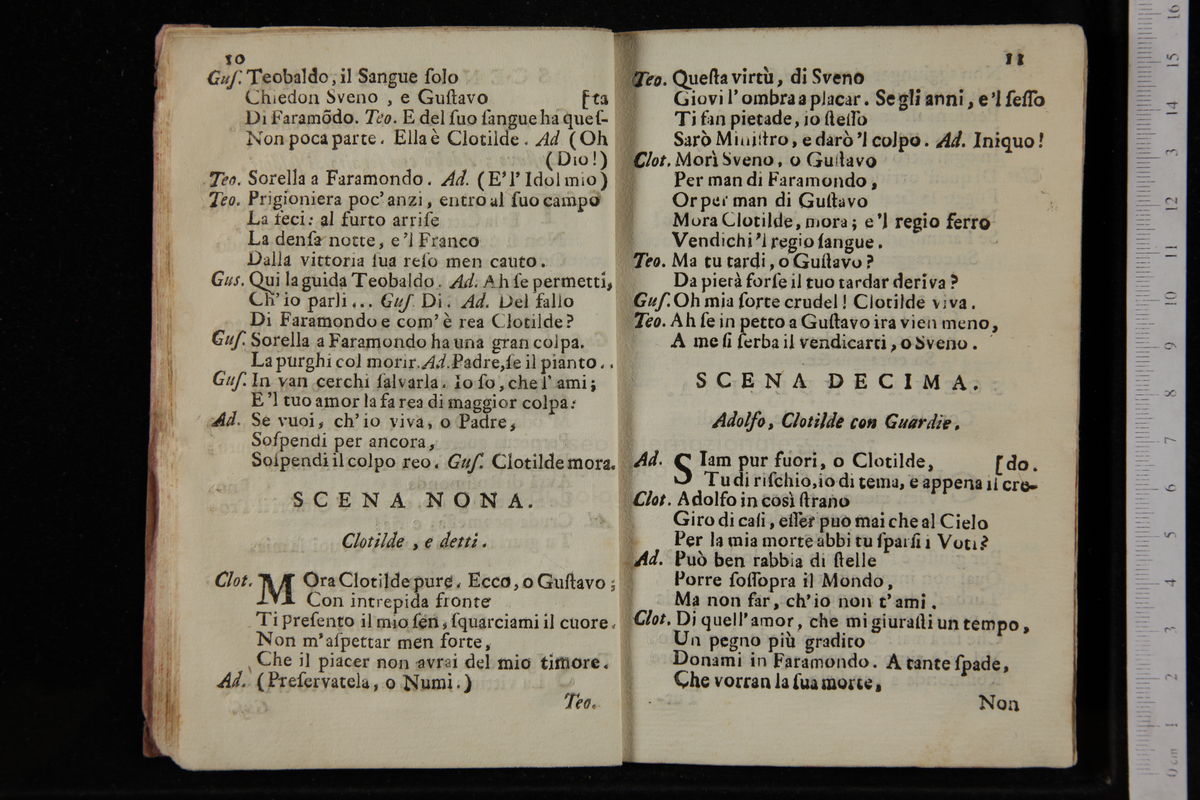 10
Guſ. Teobaldo, il Sangue ſolo
Chiedon Sveno , e Guſtavo [ta
Di Faramõdo. Teo. E del ſuo ſangue ha queſ-
Non poca parte. Ella è Clotilde. Ad (Oh
(Dio!)
Teo. Sorella a Faramondo. Ad. (E'l' Idol mio)
Teo. Prigioniera poc' anzi, entro al ſuo campo
La feci: al furto arriſe
La denſa notte, e'l Franco
Dalla vittoria ſua reſo men cauto.
Gus. Qui la guida Teobaldo. Ad. Ah ſe permetti,
Ch' io parli... Guſ. Di. Ad. Del fallo
Di Faramondo e com' è rea Clotilde?
Guſ. Sorella a Faramondo ha una gran colpa.
La purghi col morir. Ad. Padre, ſe il pianto..
Guſ. In van cerchi ſalvarla. Io ſo, che l' ami;
E'l tuo amor la fa rea di maggior colpa:
Ad. Se vuoi, ch' io viva, o Padre,
Soſpendi per ancora,
Soſpendi il colpo reo. Guſ. Clotilde mora.
SCENA NONA.
Clotilde , e detti.
Clot. MOra Clotilde pure. Ecco, o Guſtavo;
Con intrepida fronte
Ti preſento il mio ſen, ſquarciami il cuore.
Non m'aſpettar men forte,
Che il piacer non avrai del mio timore.
Ad. (Preſervatela, o Numi.)
Teo.
11
Teo. Queſta virtù, di Sveno
Giovi l' ombra a placar. Se gli anni, e'l ſeſſo
Ti fan pietade, io ſteſſo
Sarò Miniſtro, e darò 'l colpo. Ad. Iniquo!
Clot. Morì Sveno, o Guſtavo
Per man di Faramondo,
Or per man di Guſtavo
Mora Clotilde, mora; e'l regio ferro
Vendichi 'l regio ſangue.
Teo. Ma tu tardi, o Guſtavo?
Da pietà forſe il tuo tardar deriva?
Guſ. Oh mia ſorte crudel! Clotilde viva.
Teo. Ah ſe in petto a Guſtavo ira vien meno,
A me ſi ſerba il vendicarti, o Sveno.
SCENA DECIMA.
Adolfo, Clotilde con Guardie.
Ad. SIam pur fuori, o Clotilde, [do.
Tu di riſchio, io di tema, e appena il cre-
Clot. Adolfo in così ſtrano
Giro di caſi, eſſer puo mai che al Cielo
Per la mia morte abbi tu ſparſi i Voti?
Ad. Può ben rabbia di ſtelle
Porre ſoſſopra il Mondo,
Ma non far, ch' io non t' ami.
Clot. Di quell' amor, che mi giuraſti un tempo,
Un pegno più gradito
Donami in Faramondo. A tante ſpade,
Che vorran la ſua morte,
Non